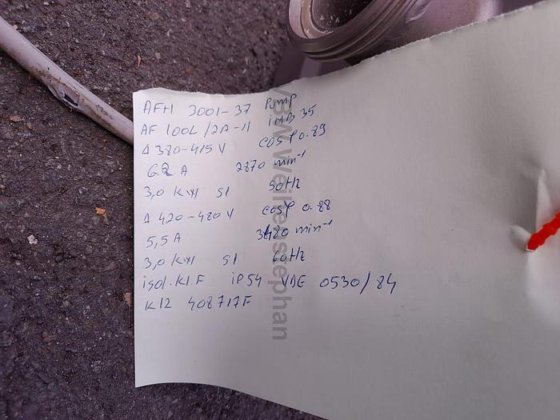 AFH 3001-37 Pump
AF 100L/2A-11 imB 35
Δ 380-415 V cosφ 0.89
6.2 A 2870 min⁻¹
3,0 kW S1 50Hz
Δ 420-480 V cosφ 0.88
5,5 A 3480 min⁻¹
3,0 kW S1 60Hz
isol.Kl F iP54 VDE 0530/84
K12 408717F
weihenstephan